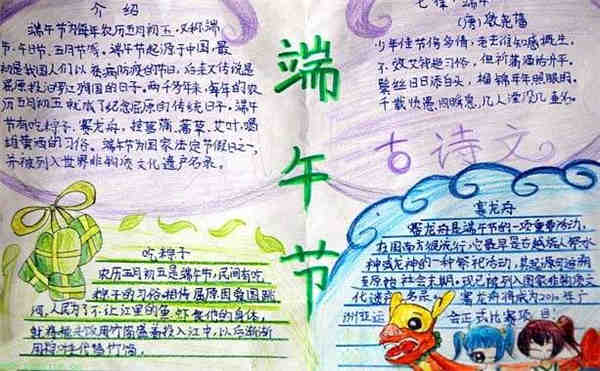 介绍
端午节为每年农历五月初五,又称端
节、午日节、五月节等。端午节起源于中国,最
初是我国人们以祛病防疫的节日,后来又传说是
屈原投汨罗江殉国的日子。两千多年来,每年的农
历五月初五就成了纪念屈原的传统日子。端午
节有吃粽子,赛龙舟,挂菖蒲、蒿草、艾叶,喝
雄黄酒的习俗。端午节为国家法定节假日之一,
并被列入世界非物质文化遗产名录。
端午节
七律·端午
(唐)殷尧藩
少年佳节倍多情,老去谁知感慨生。
不效艾符趋习俗,但祈蒲酒话升平。
鬓丝日日添白头,榴锦年年照眼明。
千载贤愚同瞬息,几人湮没几垂名。
古诗文
吃粽子
农历五月初五是端午节,民间有吃
粽子的习俗。相传屈原因爱国跳
河,人民为了不让江里的鱼虾食他的身体,
就将糯米饭用竹筒盛着投入江中,以后渐渐
用粽叶代替竹筒。
赛龙舟
赛龙舟是端午节的一项重要活动,
在国南方很流行,它最早是古越族人祭水
神或龙神的一种祭祀活动,其起源可追溯
至原始社会末期。现已被列入国家非物质文
化遗产名录。赛龙舟将成为2010年广
州亚运会正式比赛项目!